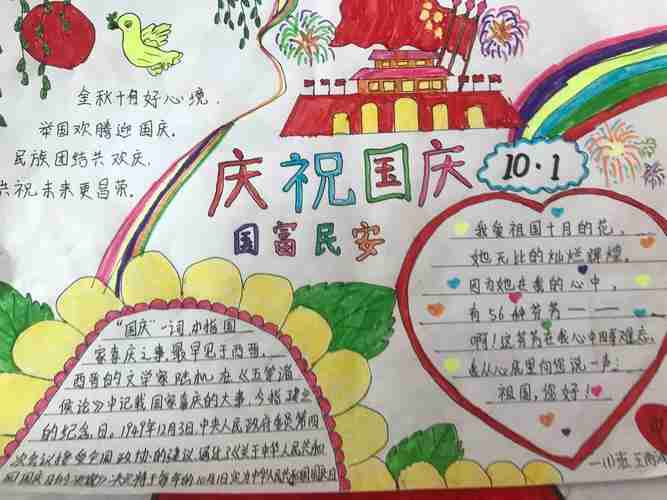 金秋十月好心境，
举国欢腾迎国庆。
民族团结共欢庆，
共祝未来更昌荣。
庆祝国庆
10·1
国富民安
我爱祖国十月的花，
她无比的灿烂辉煌，
因为她在我的心中，
有56种芳芳——
啊！这芳芳在我心中
我从心底里向您说一声：
祖国，您好！
一(1)班
"国庆"一词本指国
家喜庆之事最早见于西晋，
西晋的文学家陆机在《五等诸
侯论》中记载国家喜庆的大事，今指建
的纪念日。1949年12月3日中央人民政府委员第四
次会议接受全国政协的建议通过了《关于中华人民共和
国国庆日的决议》决定将于每年的10月1日定为中华人民共和国国庆日